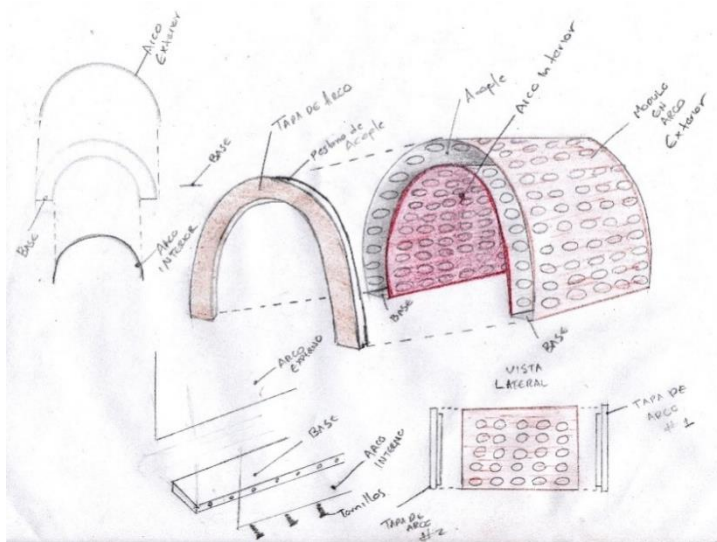 ARCO
Exterior
BASE
ARCO
INTERIOR
BASE
TAPA DE ARCO
Pestaña de
Acople
Acople
ARCO Interior
MODULO
EN ARCO
Exterior
BASE
BASE
ARCO
EXTERNO
BASE
ARCO
INTERNO
Tornillos
VISTA
LATERAL
TAPA DE
ARCO
# 1
TAPA DE
ARCO
# 2